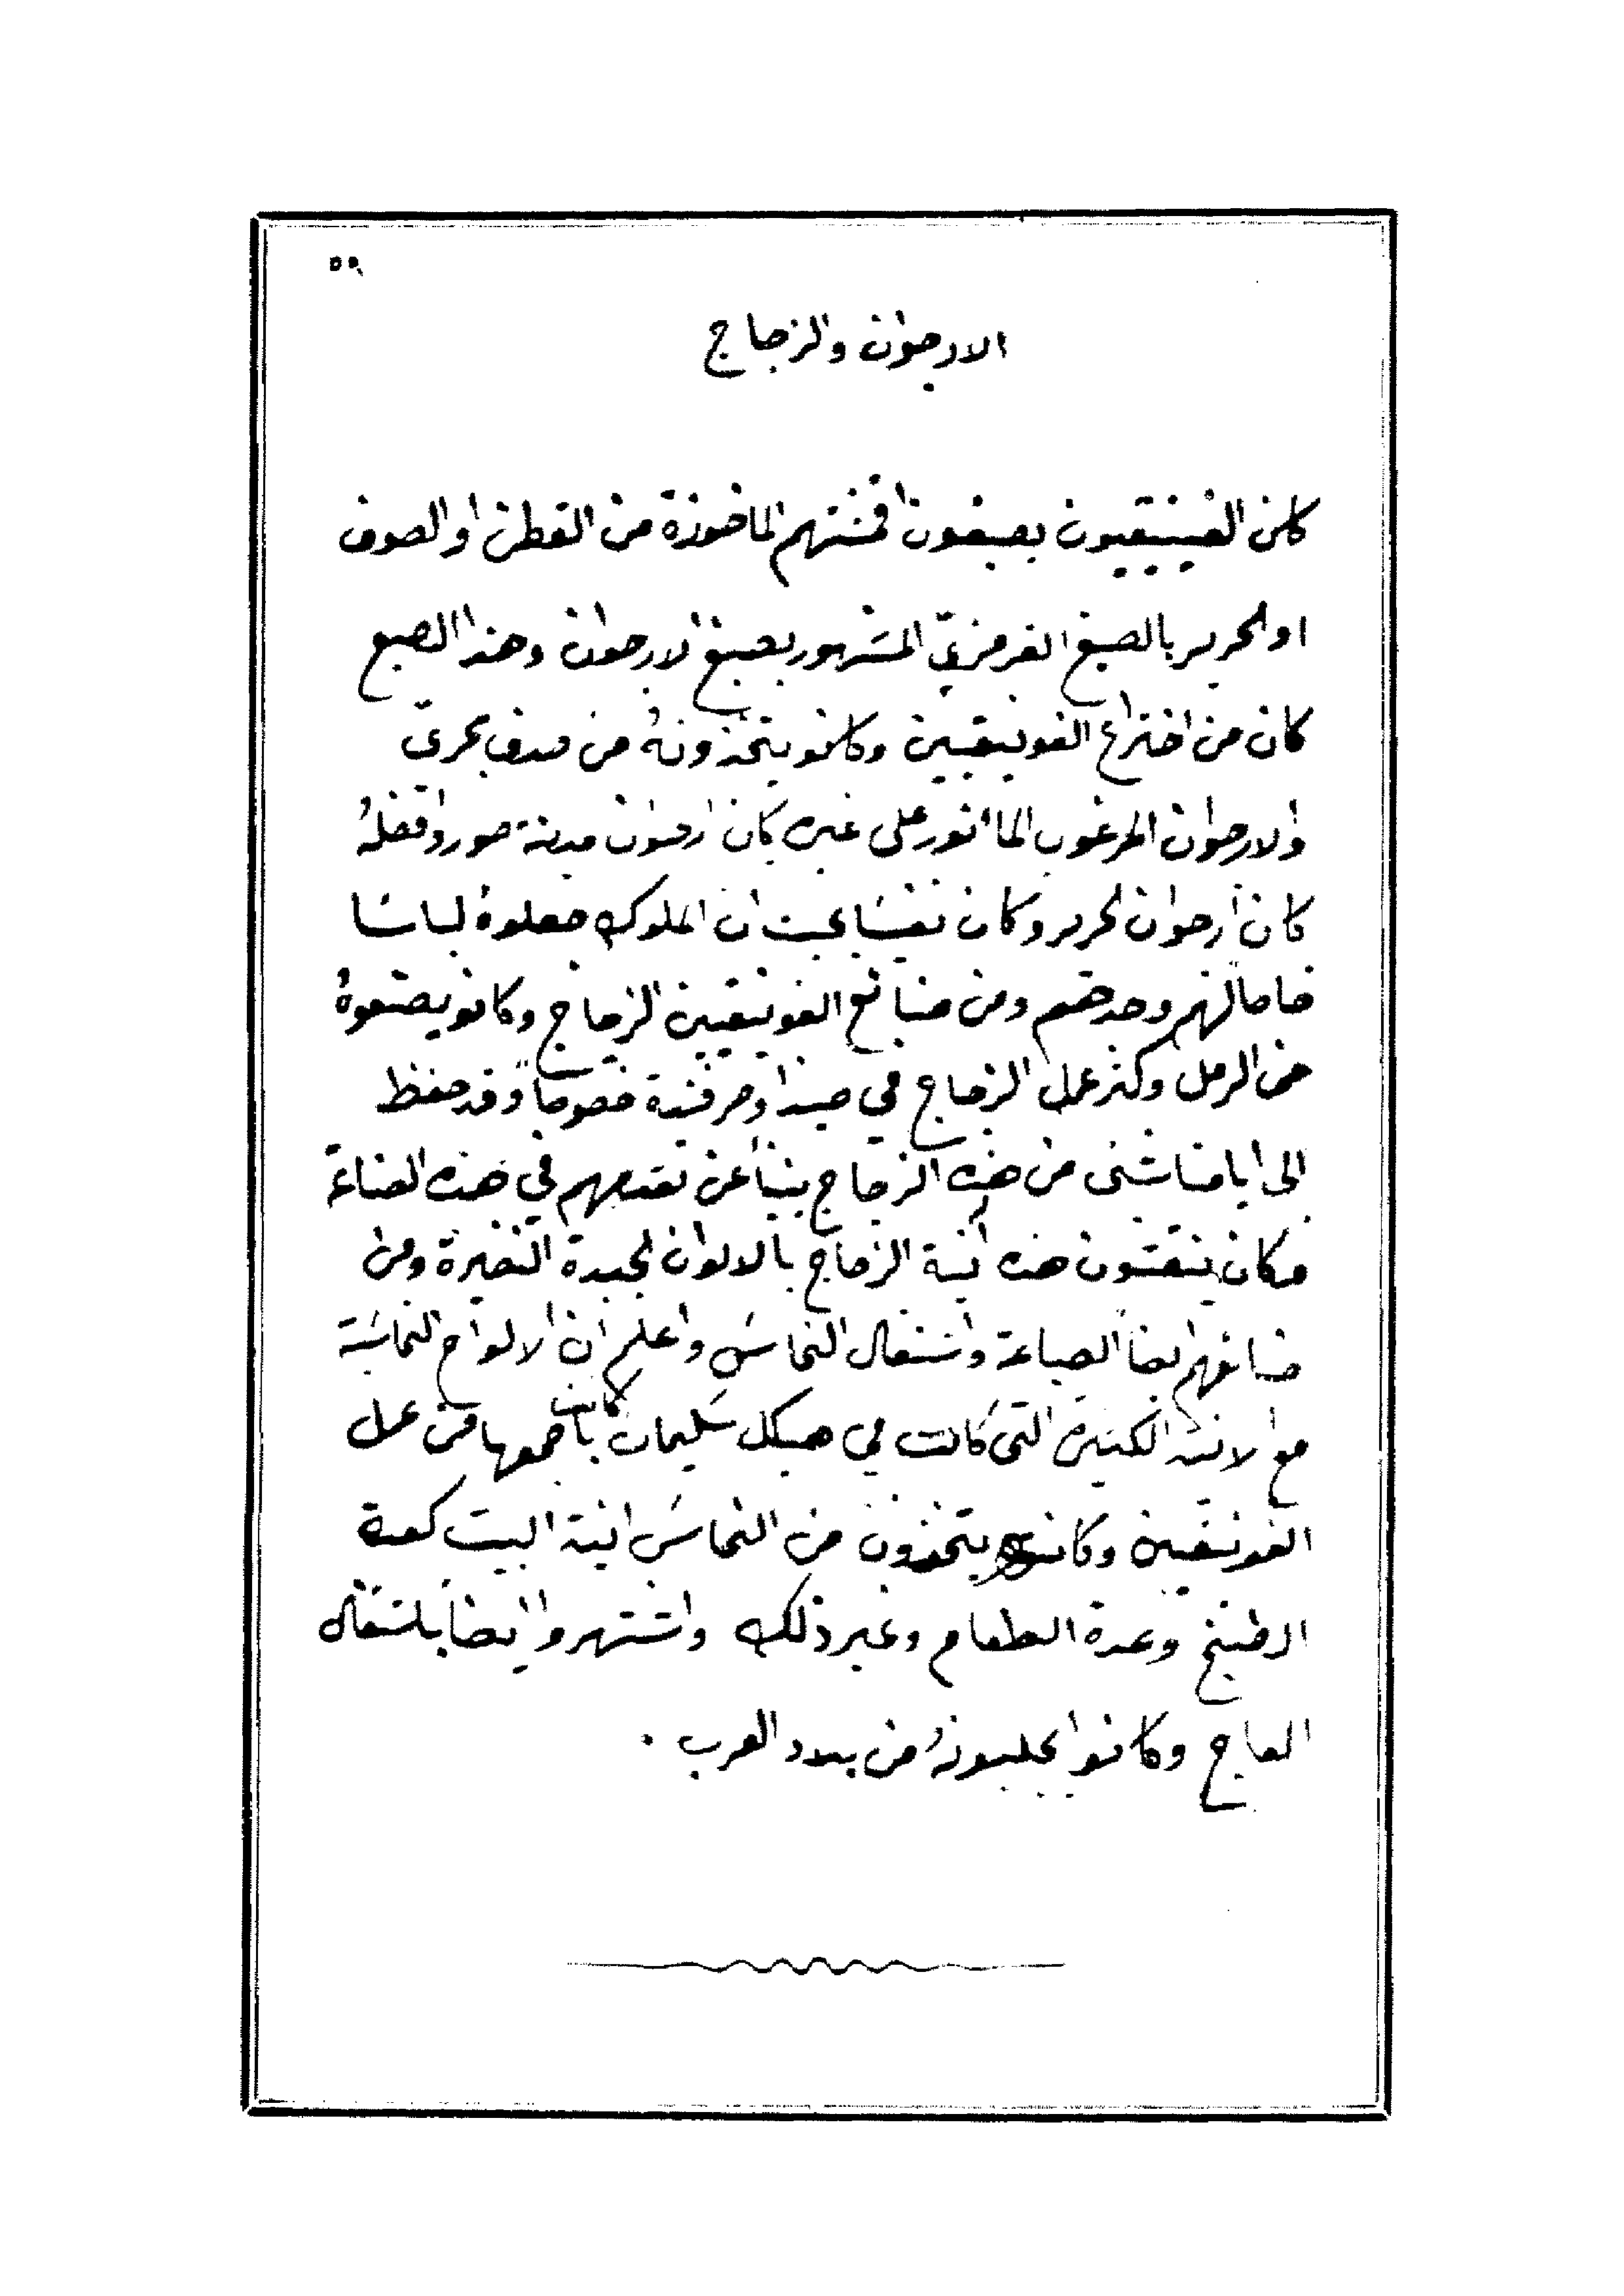 ٥٩
الارجوان والزجاج
كان الفينيقيون يصبغون اقمشتهم الماخوذة من القطن او الصوف
او الحرير بالصبغ القرمزيّ المشهور بصبغ الارجوان وهذا الصبغ
كان من اختراع الفونيقيين وكانو يتخذونهُ من صدف بحريّ
والارجوان المرغوب الماثور على غيره كان ارجوان مدينة صور وافضلهُ
كان أرجوان الحرير وكان نفيسًا بحيث ان الملوك جعلوهُ لباسًا
خاصاً لهم وحدهم ومن صنائع الفونيقيين الزجاج وكانو يصنعوهُ
من الرمل وكثر عمل الزجاج في صيدا وصرفندة خصوصاً وقد حفظ
الى ايامنا شئ من هذه الزجاج ينبأ عن تقدمهم في هذه الصناعة
فكان ينقشون هذه آنية الزجاج بالالوان الجيدة النضيرة ومن
صنائعهم ايضاً الصياغة واشتغال النحاس واعلم ان الالواح النحاسية
مع الانية الكثيرة التي كانت في هيكل سليمان كانت باجمعها من عمل
الفونيقيين وكانو يتخذون من النحاس انية البيت كعدة
الطبخ وعدة الطعام وغير ذلك واشتهروا ايضاً باشتغال
العاج وكانوا يجلبونهُ من بلاد العرب .